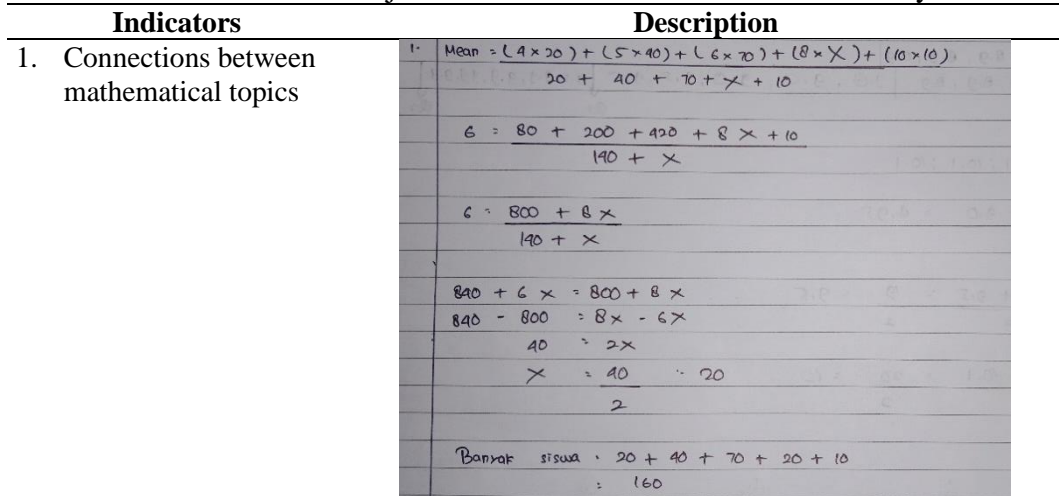 Indicators Description
1. Connections between
mathematical topics
1. Mean = (4 × 20) + (5 × 40) + (6 × 70) + (8 × X) + (10 × 10)
20 + 40 + 70 + X + 10
6 = 80 + 200 + 420 + 8 X + 10
140 + X
6 = 800 + 8 X
140 + X
840 + 6 X = 800 + 8 X
840 - 800 = 8X - 6X
40 = 2X
X = 40 = 20
2
Banyak siswa = 20 + 40 + 70 + 20 + 10
= 160